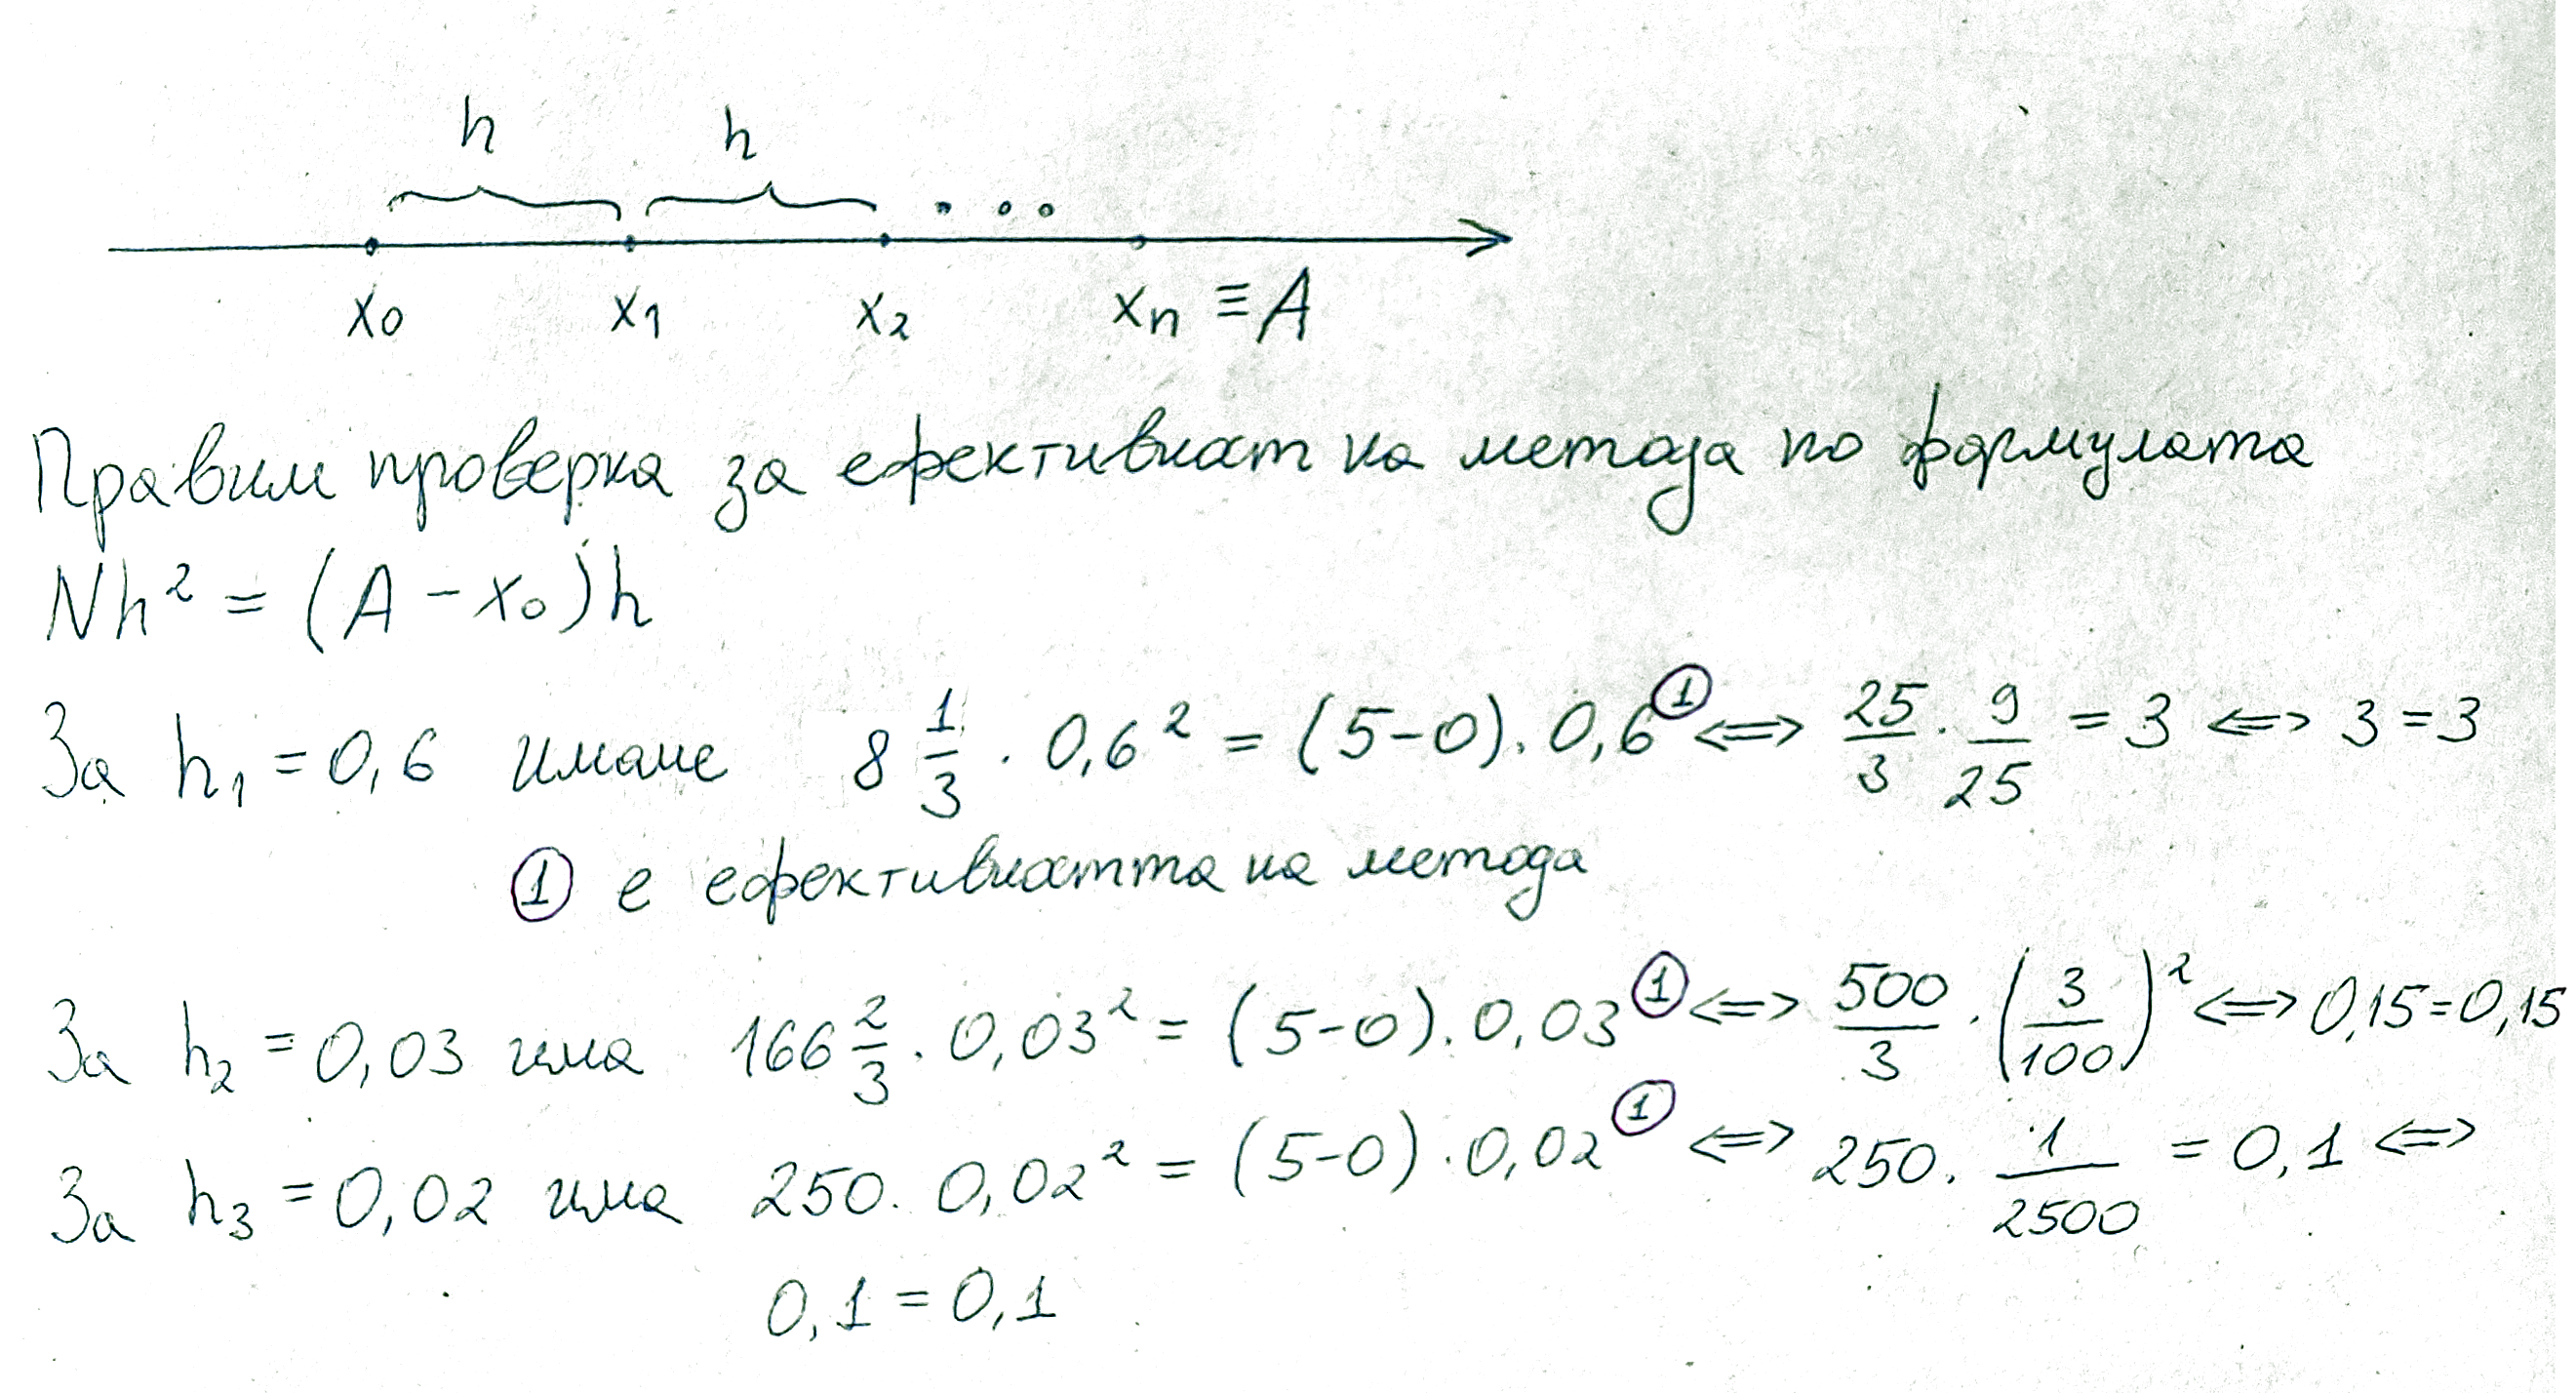 h h
x₀ x₁ x₂ xₙ ≡ A
Правим проверка за ефективност на метода по формулата
Nh² = (A - x₀)h
За h₁ = 0,6 имаме 8 1/3 . 0,6² = (5-0). 0,6^① ⇔ 25/3 . 9/25 = 3 ⇔ 3 = 3
① е ефективността на метода
За h₂ = 0,03 има 166 2/3 . 0,03² = (5-0). 0,03^① ⇔ 500/3 . (3/100)² ⇔ 0,15 = 0,15
За h₃ = 0,02 има 250. 0,02² = (5-0). 0,02^① ⇔ 250. 1/2500 = 0,1 ⇔
0,1 = 0,1